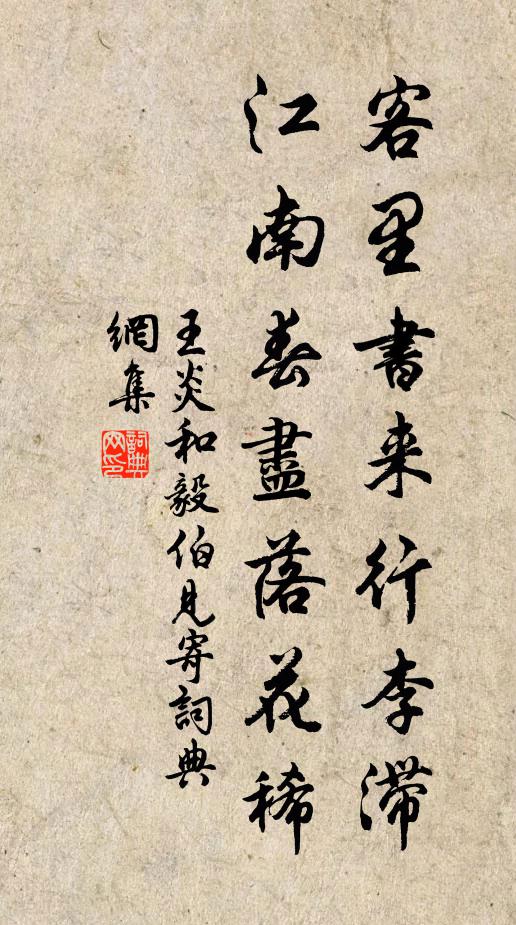 客里書来行李滞
江南春盡落花稀
王炎和毅伯見寄詞典
網集
詞典
网印